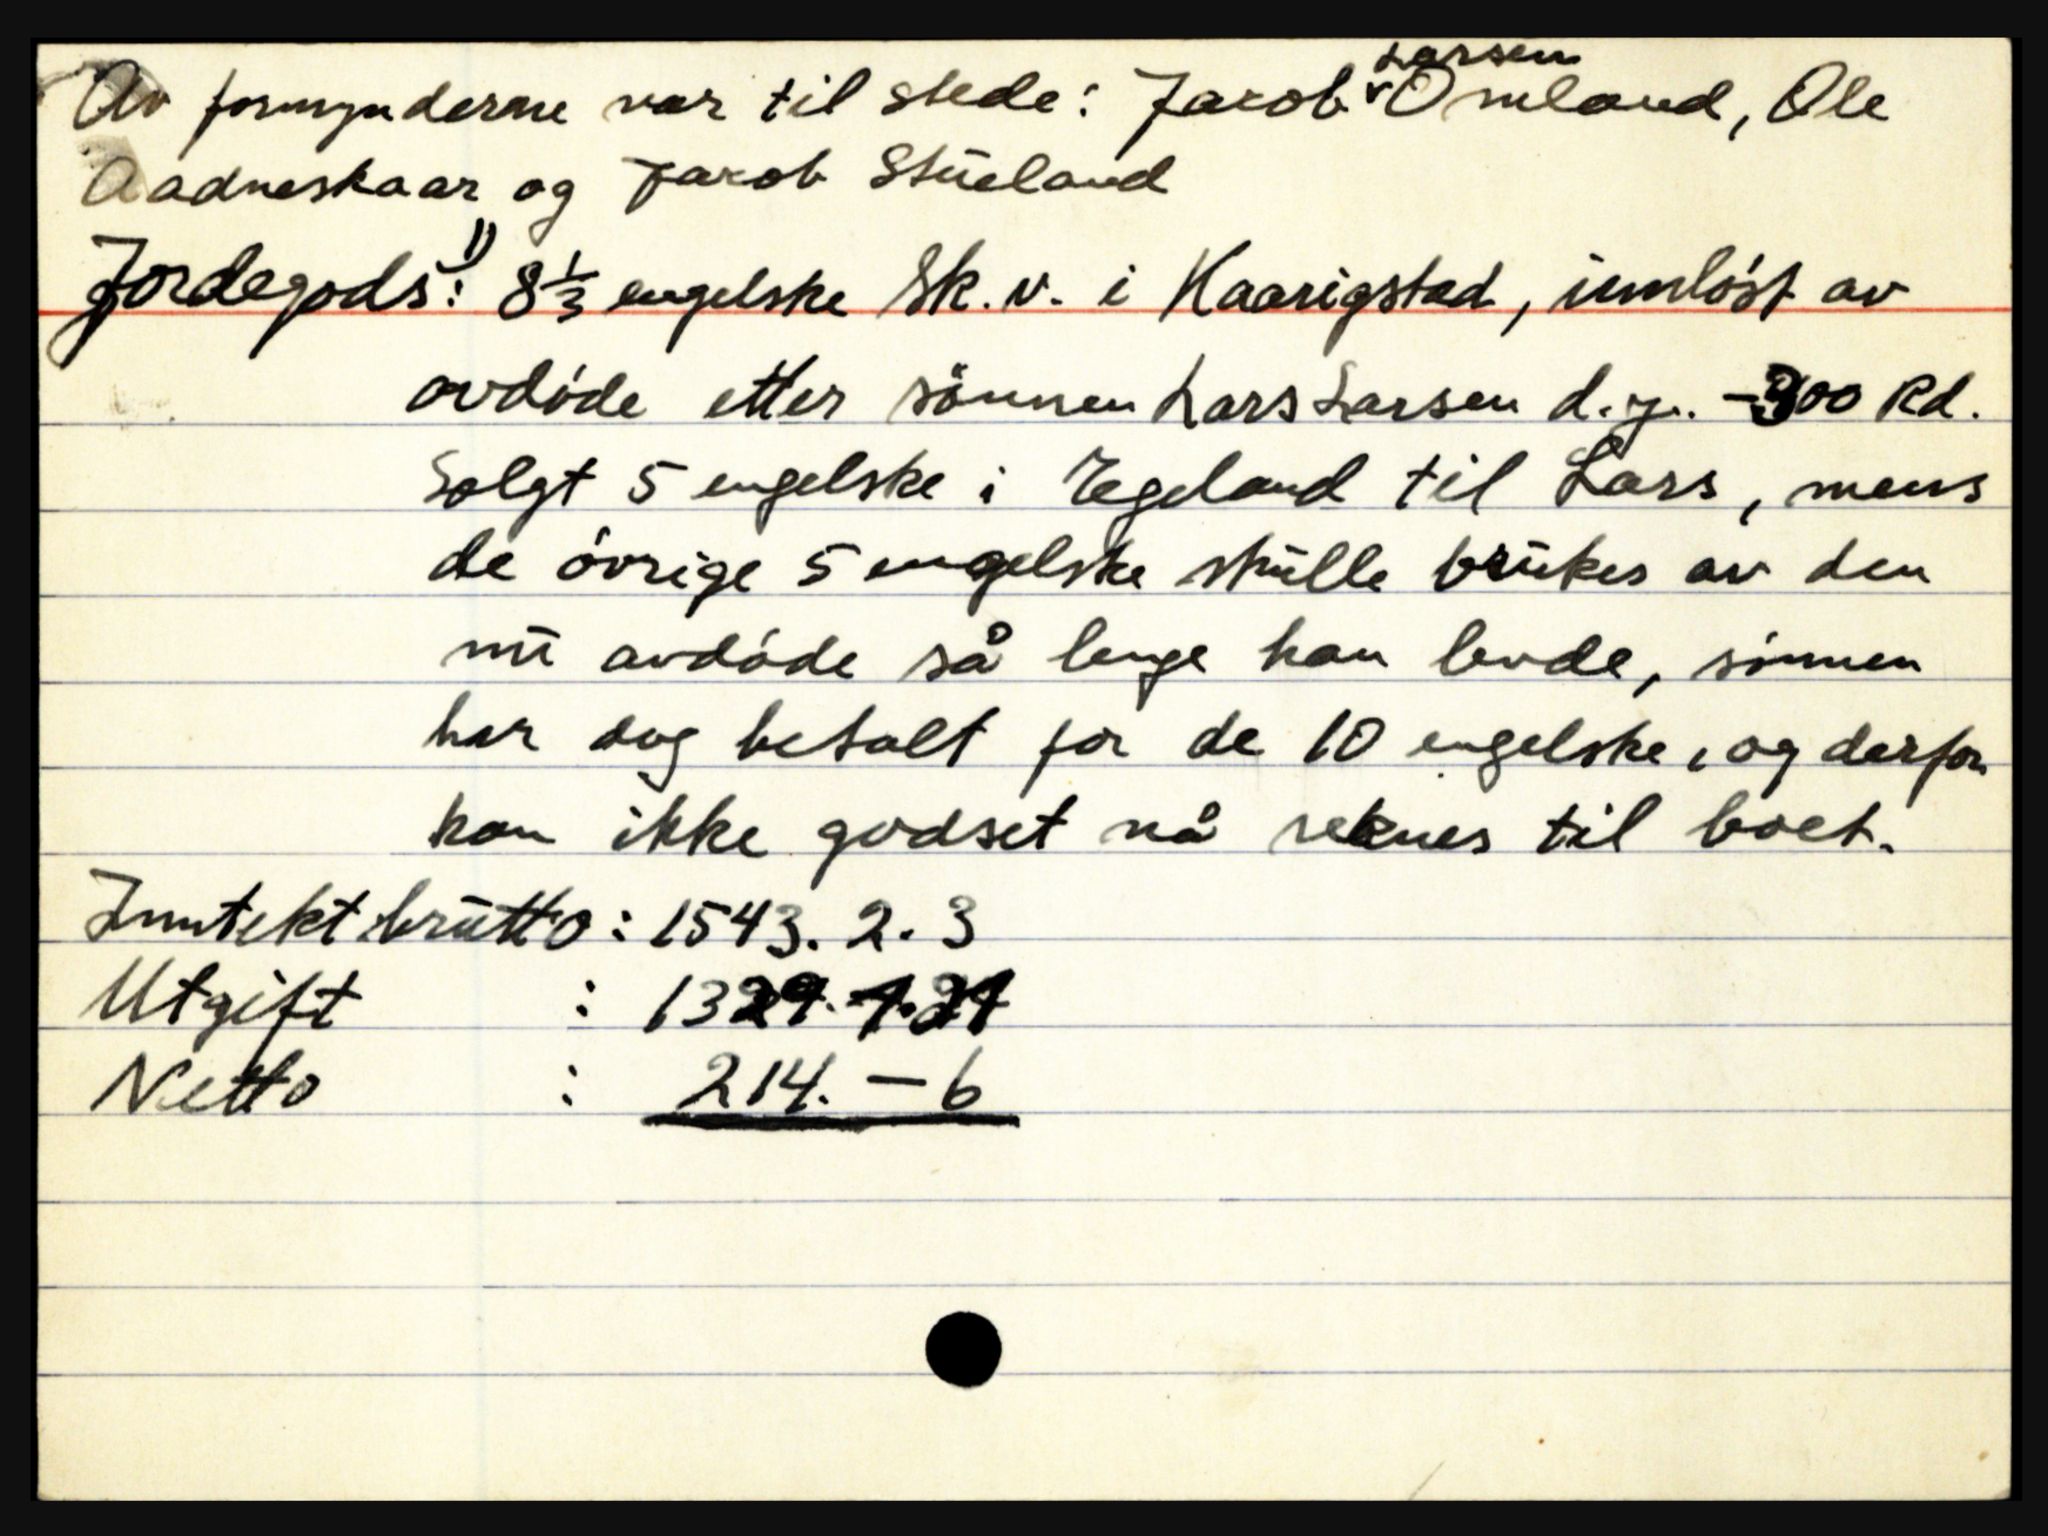 Av formynderne var til stede: Jakob Larsen Omland, Ole
Aadneskaar og Jakob Stueland
Jordegods: 1) 8 1/3 engelske Sk. v. i Kaarigstad, innløst av
avdøde etter sønnen Lars Larsen d.y. - 300 Rd.
Solgt 5 engelske i Egeland til Lars, mens
de øvrige 5 engelske skulle brukes av den
nu avdøde så lenge han levde, sønnen
har dog betalt for de 10 engelske, og derfor
kan ikke godset nå reknes til boet.
Inntekt brutto: 1543. 2. 3
Utgift : 1329. 1. 21
Netto : 214. - 6